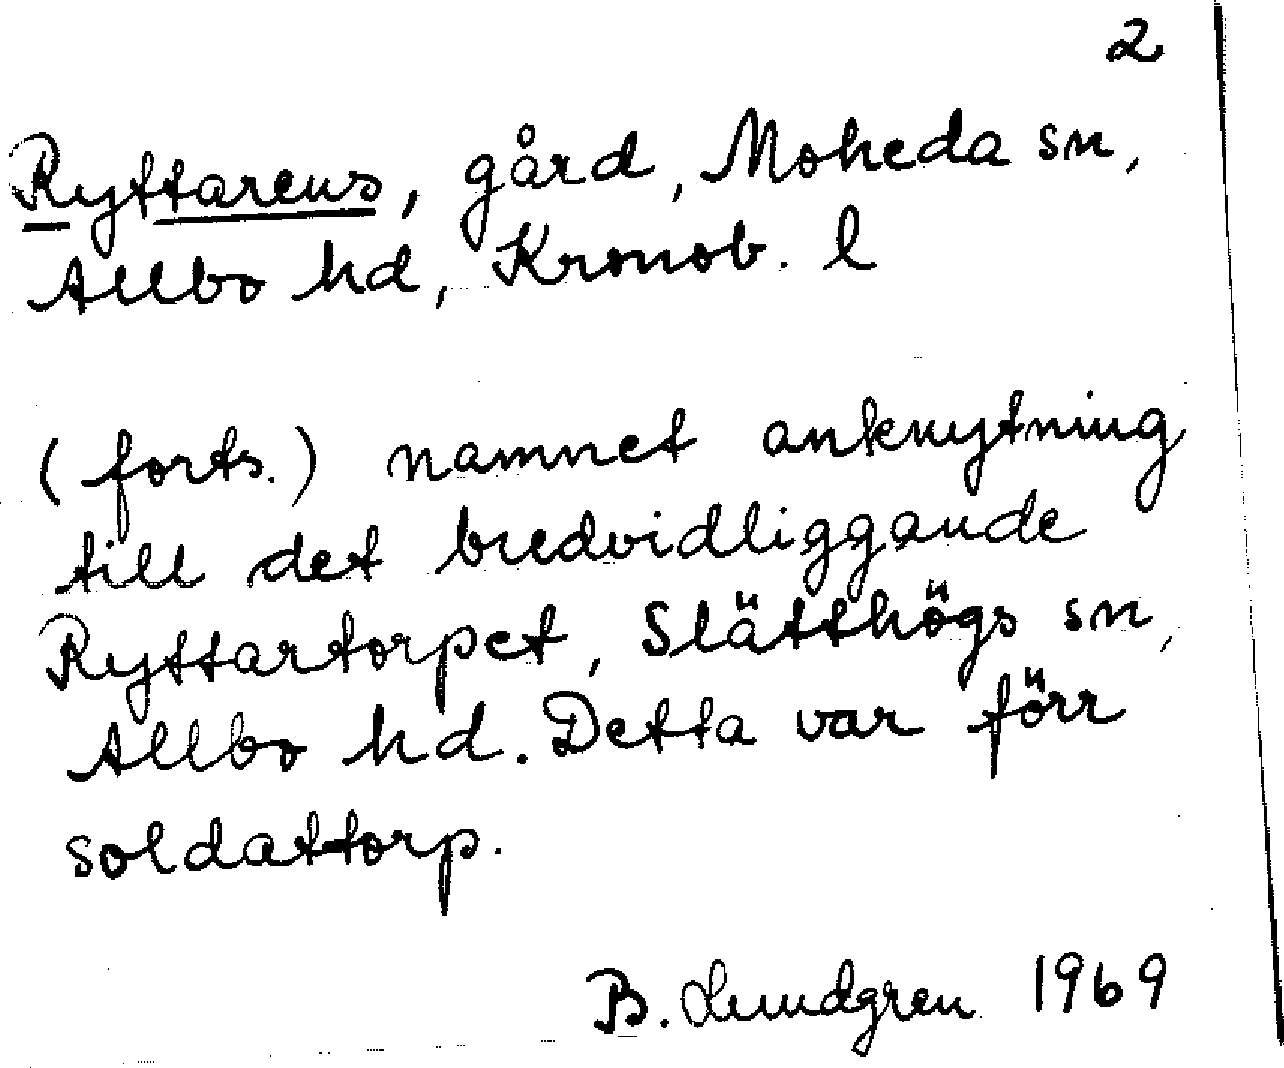 2
Ryttarens, gård, Moheda sn,
Allbo hd, Kronob. l
(forts.) namnet anknytning
till det bredvidliggande
Ryttartorpet, Slätthögs sn,
Allbo hd. Detta var förr
soldattorp.
B. Lundgren 1969